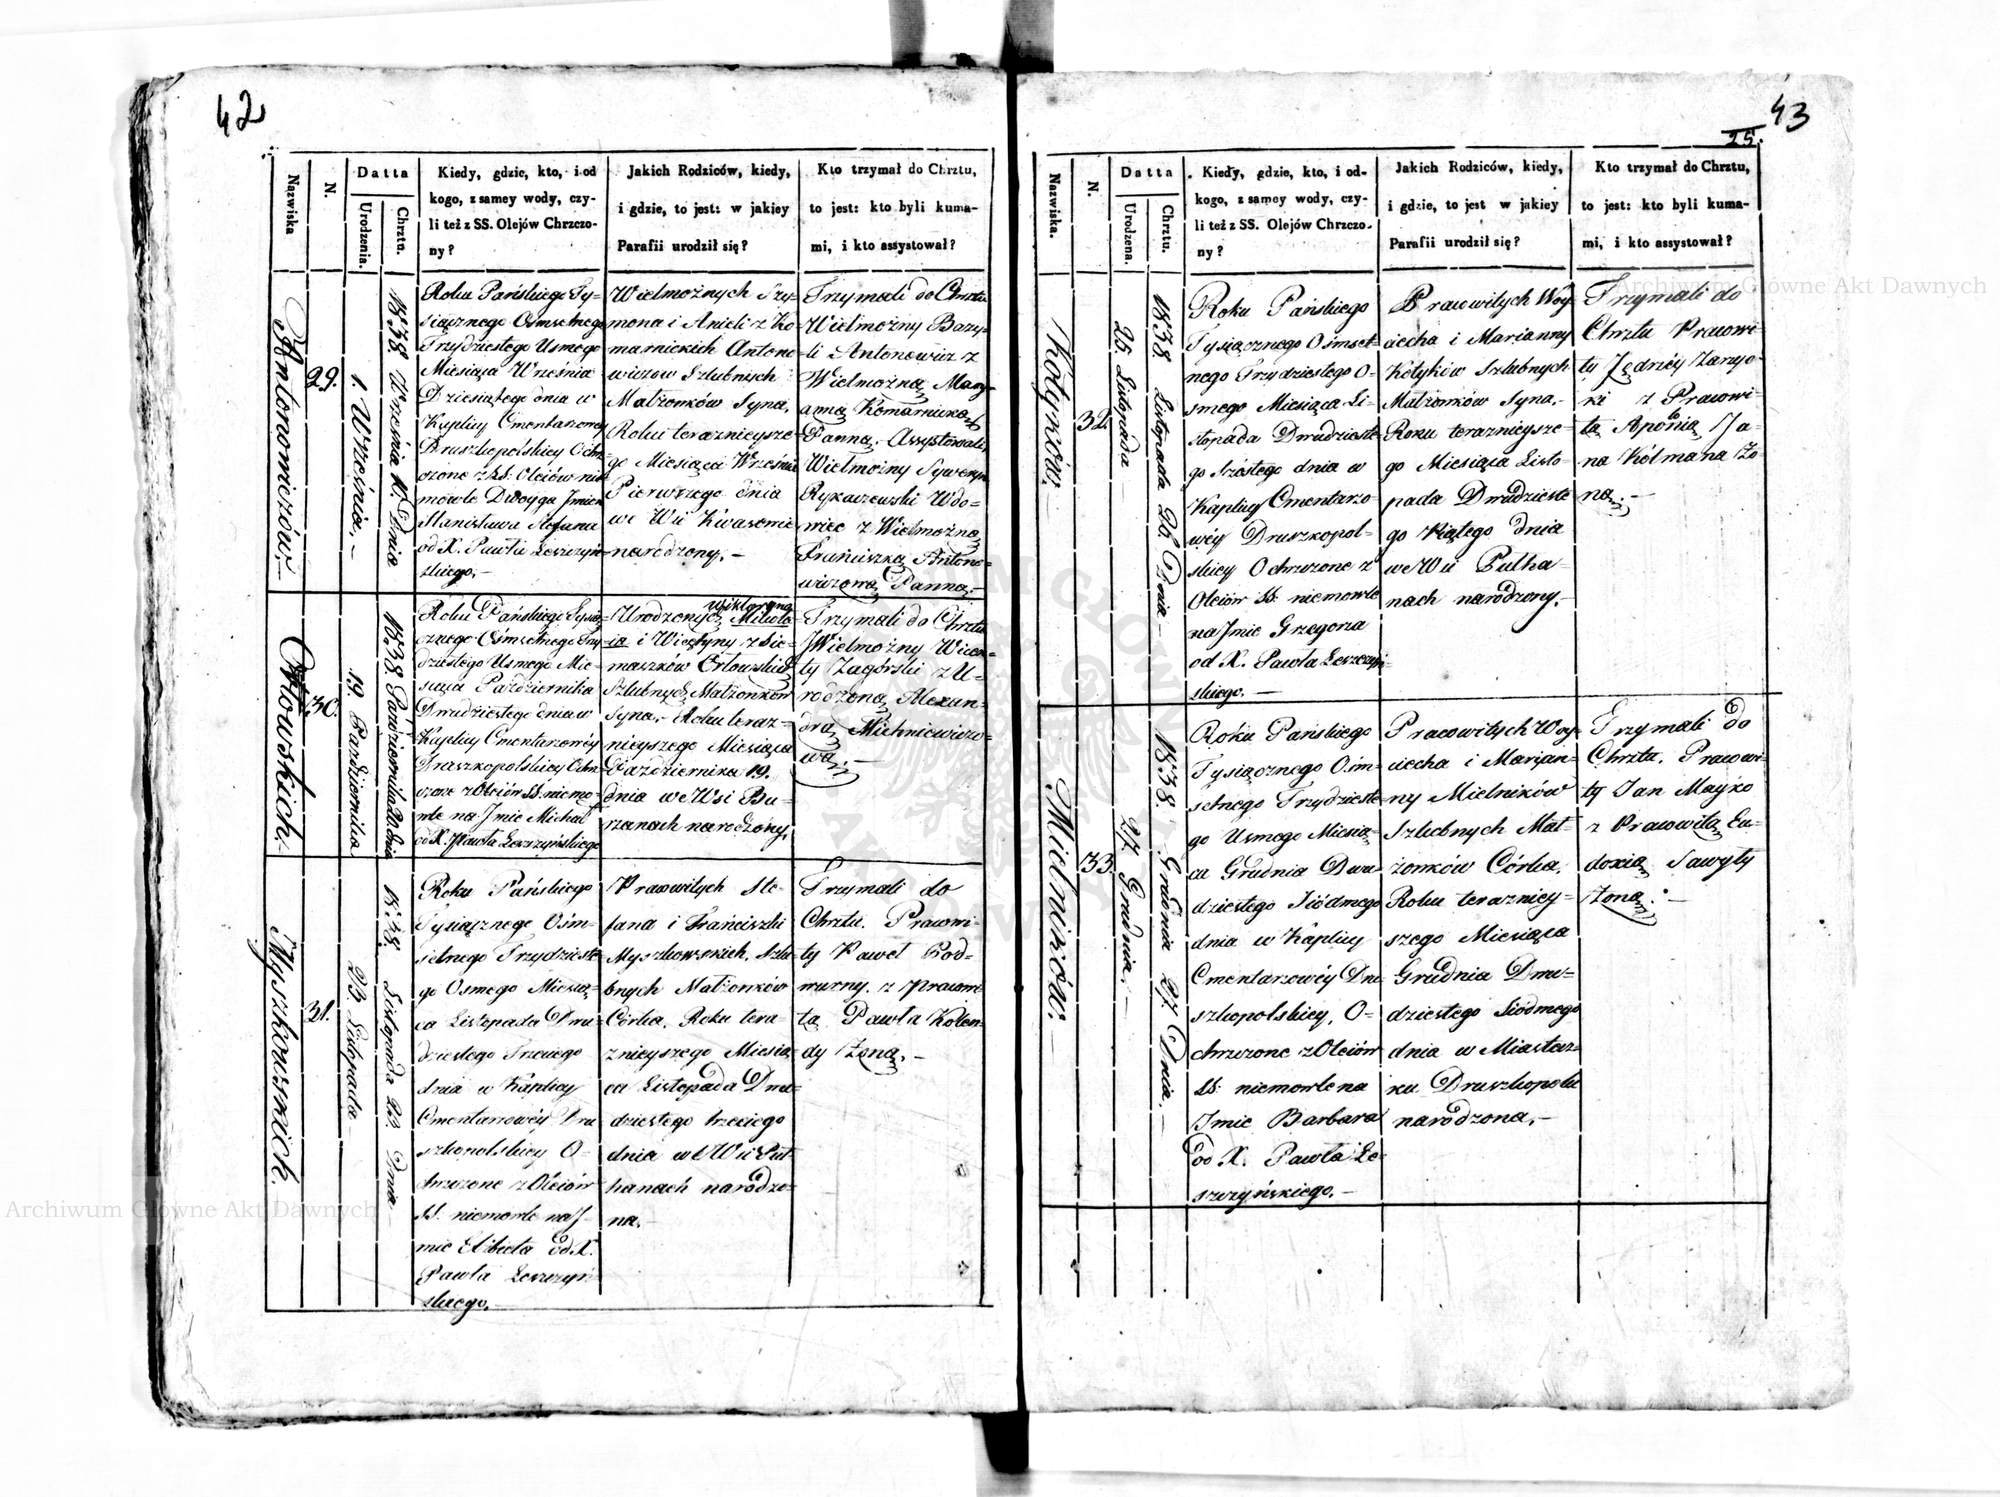 42
Nazwiska
N.
Datta
Urodzenia.
Chrztu.
Kiedy, gdzie, kto, i od
kogo, z samey wody, czy-
li też z SS. Olejów Chrzczo-
ny?
Jakich Rodziców, kiedy,
i gdzie, to jest: w jakiey
Parafii urodził się?
Kto trzymał do Chrztu,
to jest: kto byli kuma-
mi, i kto assystował?
Antonowiczów.—
29.
1. Września.—
1838. Września 10. Dnia
Roku Pańskiego Ty-
siącznego Ośmsetnego
Trzydziestego Usmego
Miesiąca Września
Dziesiątego dnia w
Kaplicy Cmentarzowey
Druszkopolskiey Ochr
czone z SS. Oleiów nie
mowle Dwoyga Jmion
Stanisława Stefana
od X. Pawła Leszczyń-
skiego.—
Wielmożnych Szy-
mona i Anieli z Ko-
marnickich Antono-
wiczow Szlubnych
Małżonków Syna,
Roku teraznieysze-
go Miesiąca Września
Pierwszego dnia
we Wsi Kwasowie
narodzony.—
Trzymali do Chrztu
Wielmożny Bazy-
li Antonowicz z
Wielmożną Mary-
anną Komarnicką
Panną. Assystowali
Wielmożny Seweryn
Rykaczewski Wdo-
wiec z Wielmożną
Franciszką Antono-
wiczową Panną.—
Orłowskich.
30.
19. Października
1838. Października 20 dnia
Roku Pańskiego Tysią-
cznego Ośmsetnego Trzy
dziestego Usmego Mie-
siąca Października
Dwudziestego dnia w
Kaplicy Cmentarzowéy
Druszkopolskiey Ochr
czone z Oleiów SS. niemo-
wle na Jmie Michał
od X. Pawła Leszczyńskiego
Wiktoryna
Urodzonych
i Wicętyny z Sie-
maszków Orłowskich
Szlubnych Małżonków
Syna,- Roku teraz-
nieyszego Miesiąca
Października 19.
dnia we Wsi Bu-
rzanach narodzony.
Trzymali do Chrztu
JWielmożny Wicen-
ty Zagórski z U-
rodzoną Alexan-
drą Michniewiczo-
wą.—
Myszkowskich.
31.
23. Listopada
1838. Listopada 23. Dnia
Roku Pańskiego
Tysiącznego Ośm-
setnego Trzydzieste
go Osmego Miesią-
ca Listopada Dwu-
dziestego Trzeciego
dnia w Kaplicy
Cmentarzowéy Dru
szkopolskiey O-
chrzczone z Oleiów
SS. niemowle na J-
mie Elżbieta od X.
Pawła Leszczyń
skiego.
Pracowitych Ste-
fana i Franciszki
Myszkowskich, Szlu-
bnych Małżonków
Córka, Roku tera-
znieyszego Miesią
ca Listopada Dwu-
dziestego trzeciego
dnia we Wsi Puł-
hanach narodzo-
na.—
Trzymali do
Chrztu. Pracowi-
ty Paweł Pod-
wurny, z pracowi
tą Pawła Kolen-
dy Żoną.—
43
25.
Nazwiska.
N.
Datta
Urodzenia.
Chrztu.
Kiedy, gdzie, kto, i od-
kogo, z samey wody, czy-
li też z SS. Olejów Chrzczo-
ny?
Jakich Rodziców, kiedy,
i gdzie, to jest w jakiey
Parafii urodził się?
Kto trzymał do Chrztu,
to jest: kto byli kuma-
mi, i kto assystował?
Kotyków.
32.
25. Listopada
1838. Listopada 26. Dnia
Roku Pańskiego
Tysiącznego Ośmset-
nego Trzydziestego O-
smego Miesiąca Li-
stopada Dwudzieste
go Szóstego dnia w
Kaplicy Cmentarzo-
wéy Druszkopol-
skiey Ochrzczone z
Oleiów SS. niemowle
na Jmie Grzegorza
od X. Pawła Leszczyń-
skiego.—
Pracowitych Woy-
ciecha i Marianny
Kotyków Szlubnych
Małżonków Syna.-
Roku teraznieysze-
go Miesiąca Listo-
pada Dwudzieste
go Piątego dnia
we Wsi Pułha-
nach narodzony.—
Trzymali do
Chrztu Pracowi-
ty Jędrzéy
z Pracowi-
tą Aponią Ja-
na Kólmana Żo-
ną.—
Mielników.
33.
27. Grudnia.—
1838. Grudnia 27. Dnia.—
Roku Pańskiego
Tysiącznego Ośm-
setnego Trzydzieste
go Usmego Miesią-
ca Grudnia Dwu-
dziestego Siódmego
dnia w Kaplicy
Cmentarzowéy Dru
szkopolskiey, O-
chrzczone z Oleiów
SS. niemowle na
Jmie Barbara
od X. Pawła Le-
szczyńskiego.—
Pracowitych Woy-
ciecha i Marjan-
ny Mielników
Szlubnych Mał-
żonków Córka.
Roku terazniey-
szego Miesiąca
Grudnia Dwu-
dziestego Siódmego
dnia w Miastecz-
ku Druszkopolu
narodzona.—
Trzymali do
Chrztu. Pracowi-
ty Jan Mayko
z Pracowitą Eu-
doxią Sawyły
Żoną.—
Archiwum Główne Akt Dawnych
Archiwum Główne Akt Dawnych